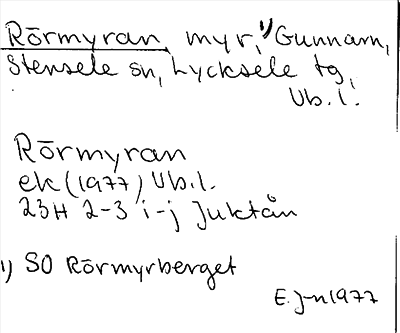 Rörmyran, myr, 1) Gunnarn,
Stensele sn, Lycksele tg,
Vb. l.
Rörmyran
ek (1977) Vb. l.
23H 2-3 i-j Juktån
1) SO Rörmyrberget
E. J-n 1977